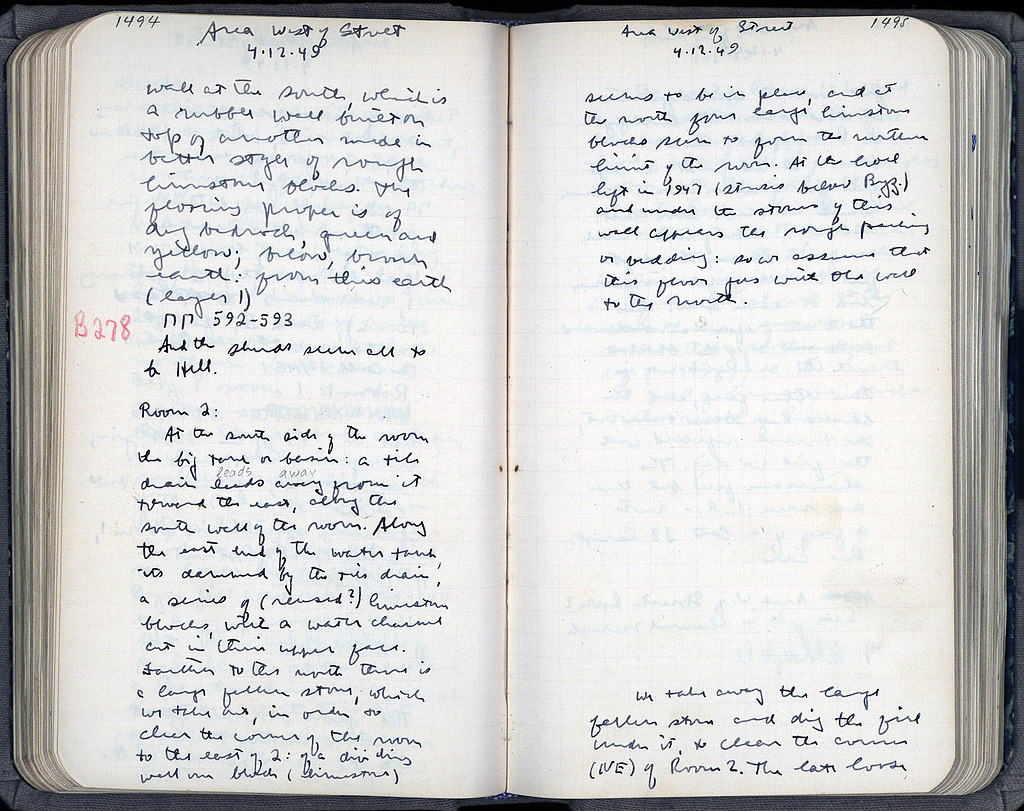 1494
Area West of Street
4.12.49
wall at the south, which is
a rubble wall built on
top of another made in
better style of rough
limestone blocks. The
flooring proper is of
dug bedrock, green and
yellow; below, brown
earth. From this earth
(layer 1)
B278
ΠΓ 592-593
And the sherds seem all to
be Hell.
Room 2:
At the south side of the room
the big tank or basin: a tile
leads away
drain leads away from it
toward the east, along the
south wall of the room. Along
the east end of the water tank,
its dammed by the tile drain,
a series of (reused?) limestone
blocks, with a water channel
cut in their upper face.
Farther to the north there is
a large fallen stone, which
we take out, in order to
clear the corner of the room
to the east of 2: of a dividing
wall one block (limestone)
1495
Area West of Street
4.12.49
seems to be in place, and at
the north four large limestone
blocks seem to form the northern
limit of the room. At the level
left in 1947 (stosis below Byz.)
and under the stones of this
wall appears the rough packing
or bedding: so we assume that
this floor goes with the wall
to the north.
We take away the large
fallen stone and dig the fill
under it, to clear the corner
(NE) of Room 2. The late loose